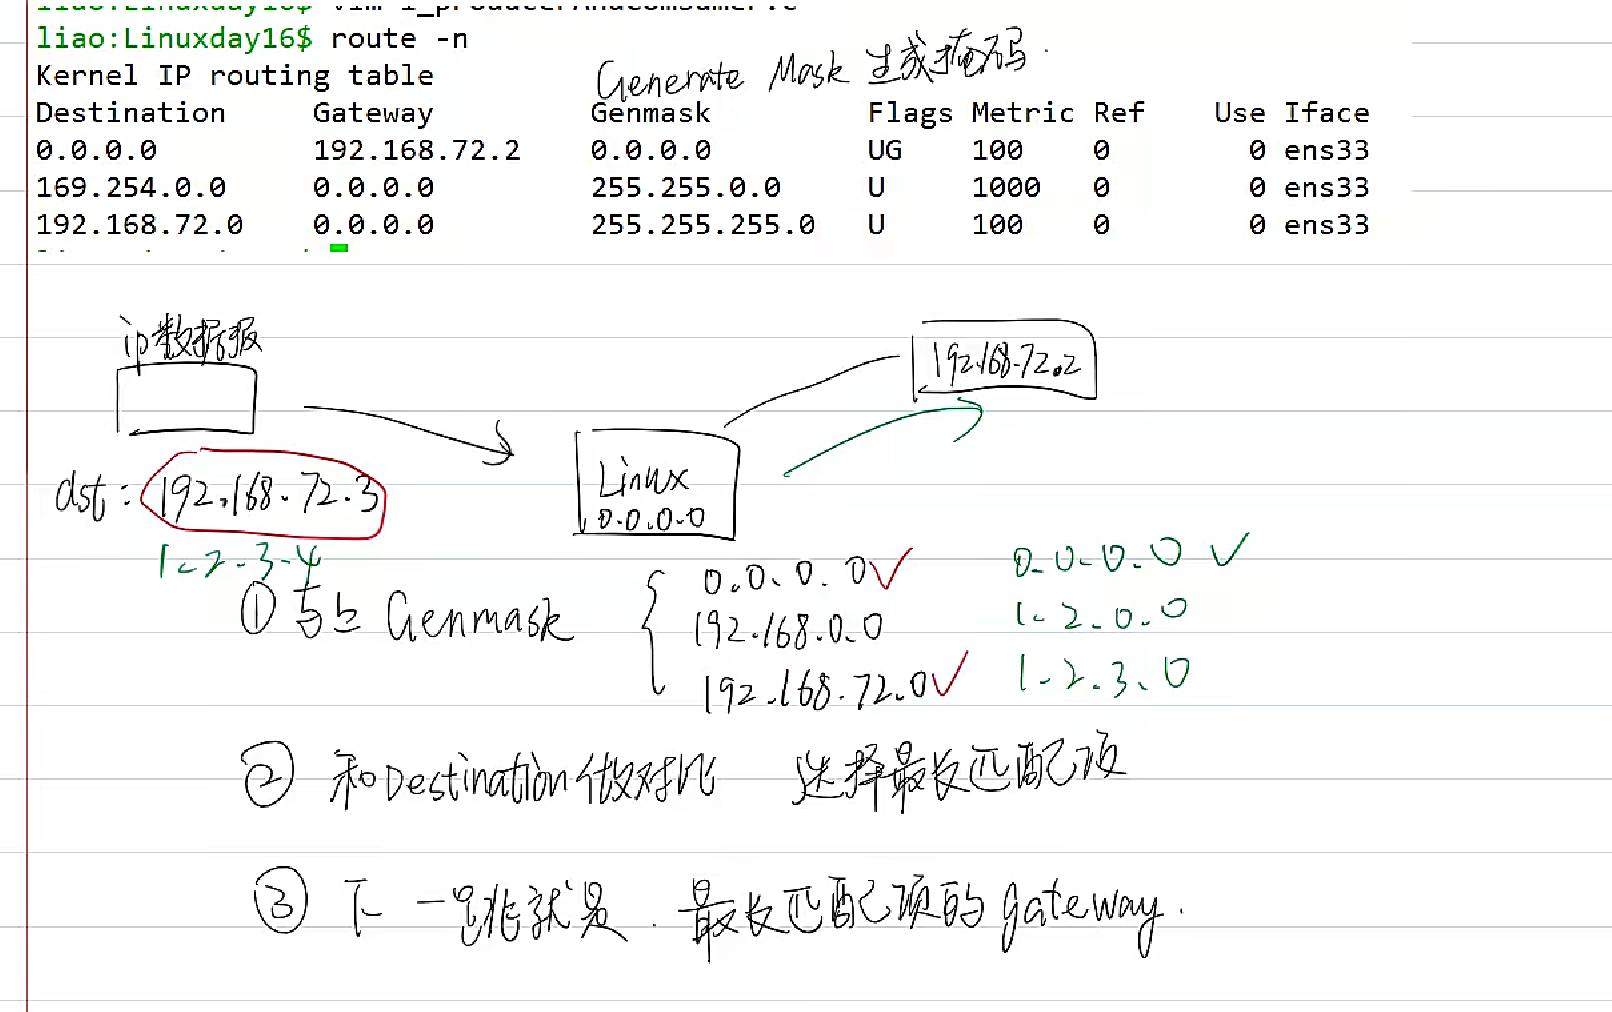 liao:Linuxday16$ route -n
Kernel IP routing table
Generate Mask 生成掩码.
Destination Gateway Genmask Flags Metric Ref Use Iface
0.0.0.0 192.168.72.2 0.0.0.0 UG 100 0 0 ens33
169.254.0.0 0.0.0.0 255.255.0.0 U 1000 0 0 ens33
192.168.72.0 0.0.0.0 255.255.255.0 U 100 0 0 ens33
ip数据报
192.168.72.2
Linux
0.0.0.0
dst: 192.168.72.3
1.2.3.4
① 与上 Genmask
0.0.0.0✓ 0.0.0.0 ✓
192.168.0.0 1.2.0.0
192.168.72.0✓ 1.2.3.0
② 和Destination做对比 选择最长匹配项
③ 下一跳就是. 最长匹配项的gateway.